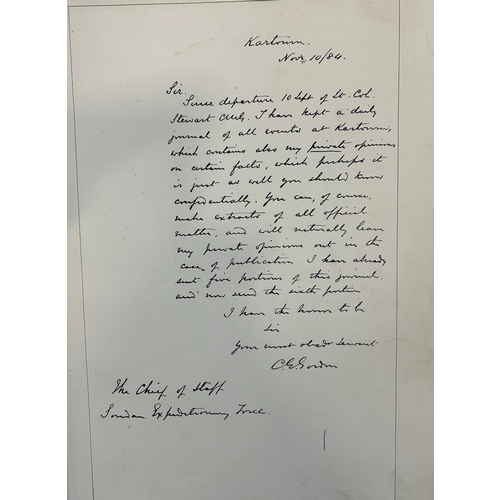 Kartoum.
Novr 10/84.
Sir.
Since departure 10 Sept of Lt. Col.
Stewart CMG. I have kept a daily
journal of all events at Kartoum,
which contains also my private opinions
on certain facts, which perhaps it
is just as well you should know
confidentially. You can, of course,
make extracts of all official
matter, and will naturally leave
my private opinions out in the
case of publication. I have already
sent five portions of this journal
and now send the sixth portion
I have the honor to be
Sir
Your most obedt servant
C. G. Gordon
The Chief of Staff
Soudan Expeditionary Force.